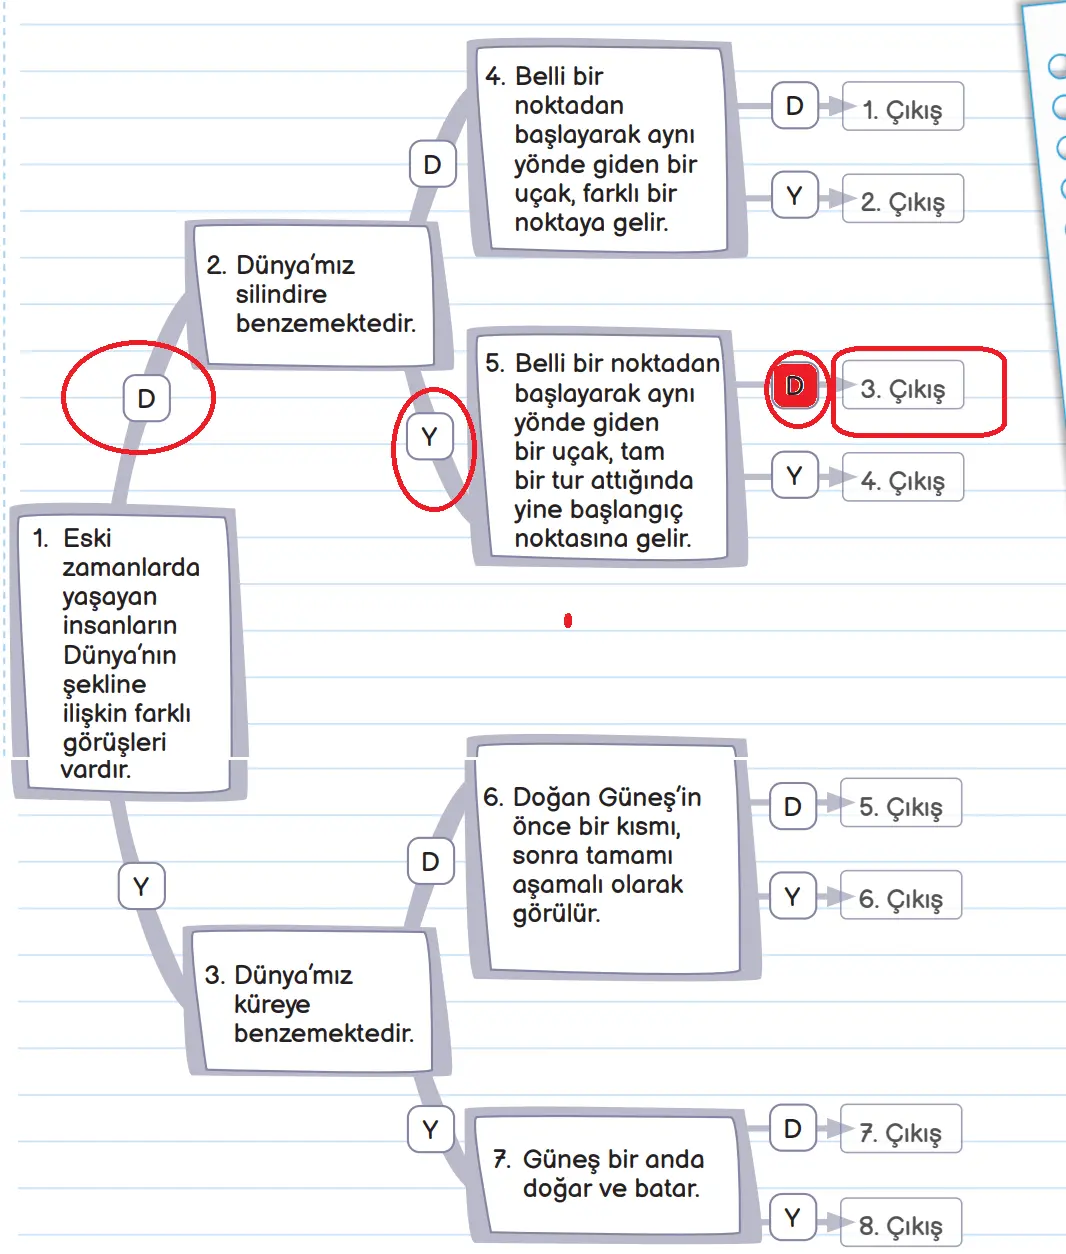 4. Belli bir
noktadan
başlayarak aynı
yönde giden bir
uçak, farklı bir
noktaya gelir.
D
1. Çıkış
Y
2. Çıkış
D
2. Dünya'mız
silindire
benzemektedir.
5. Belli bir noktadan
başlayarak aynı
yönde giden
bir uçak, tam
bir tur attığında
yine başlangıç
noktasına gelir.
D
3. Çıkış
Y
4. Çıkış
D
Y
1. Eski
zamanlarda
yaşayan
insanların
Dünya'nın
şekline
ilişkin farklı
görüşleri
vardır.
6. Doğan Güneş'in
önce bir kısmı,
sonra tamamı
aşamalı olarak
görülür.
D
5. Çıkış
Y
6. Çıkış
D
Y
3. Dünya'mız
küreye
benzemektedir.
Y
7. Güneş bir anda
doğar ve batar.
D
7. Çıkış
Y
8. Çıkış